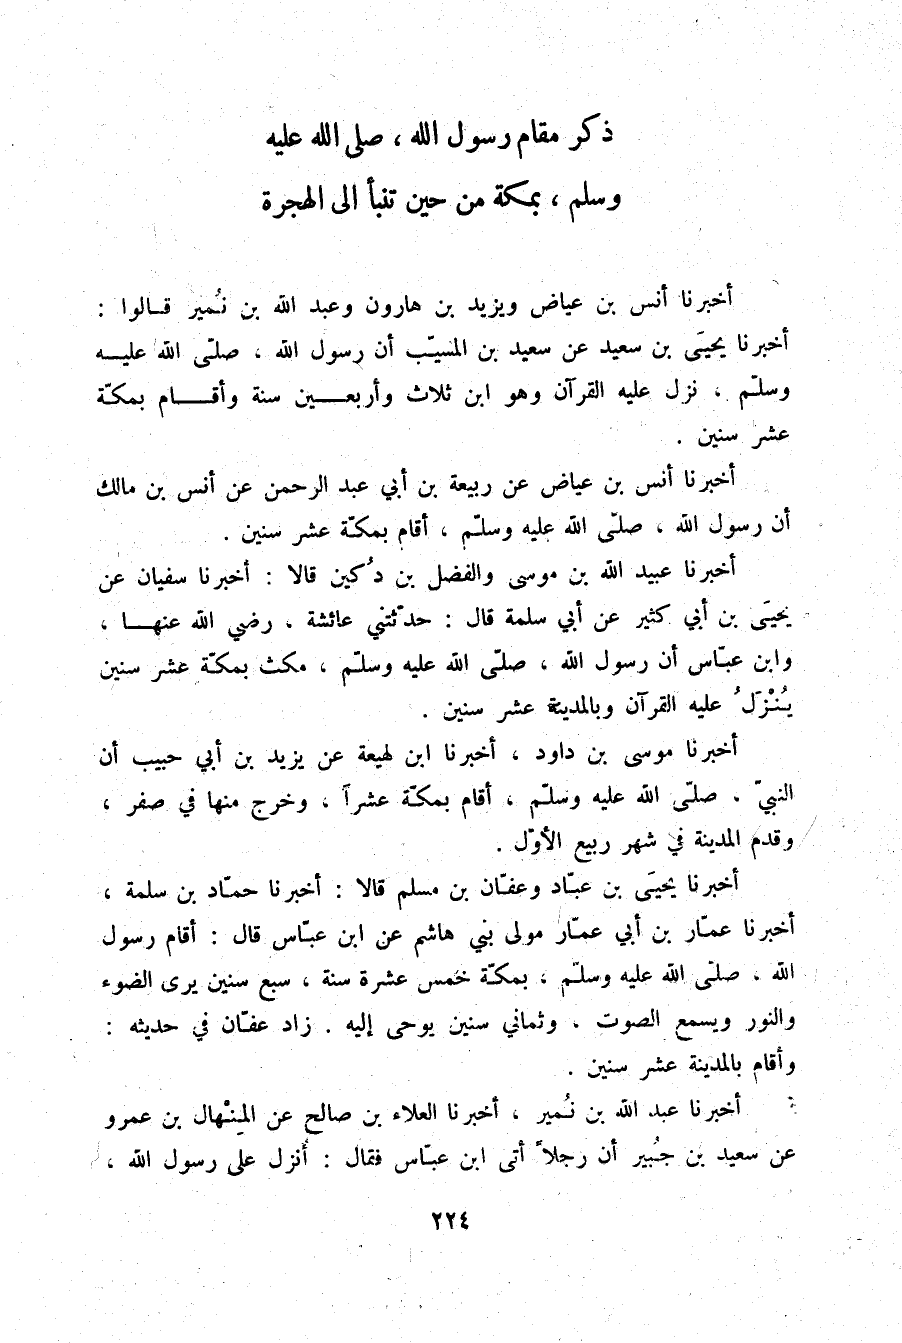 ذكر مقام رسول الله ، صلى الله عليه
وسلم ، بمكة من حين تنبأ الى الهجرة
أخبرنا أنس بن عياض ويزيد بن هارون وعبد الله بن نُمير قـالوا :
أخبرنا يحيَى بن سعيد عن سعيد بن المسيّب أن رسول الله ، صلّى الله عليـــه
وسلّم ، نزل عليه القرآن وهو ابن ثلاث وأربعـــين سنة وأقـــام بمكّة
عشر سنين .
أخبرنا أنس بن عياض عن ربيعة بن أبي عبد الرحمن عن أنس بن مالك
أن رسول الله ، صلّى الله عليه وسلّم ، أقام بمكّة عشر سنين .
أخبرنا عبيد الله بن موسى والفضل بن دُكين قالا : أخبرنا سفيان عن
يحيَى بن أبي كثير عن أبي سلمة قال : حدّثتني عائشة ، رضي الله عنهـــا ،
وابن عبّاس أن رسول الله ، صلّى الله عليه وسلّم ، مكث بمكّة عشر سنين
يُنْزَلُ عليه القرآن وبالمدينة عشر سنين .
أخبرنا موسى بن داود ، أخبرنا ابن لهيعة عن يزيد بن أبي حبيب أن
النبيّ ، صلّى الله عليه وسلّم ، أقام بمكّة عشراً ، وخرج منها في صفر ،
وقدم المدينة في شهر ربيع الأوّل .
أخبرنا يحيَى بن عبّاد وعفّان بن مسلم قالا : أخبرنا حمّاد بن سلمة ،
أخبرنا عمّار بن أبي عمّار مولى بني هاشم عن ابن عبّاس قال : أقام رسول
الله ، صلّى الله عليه وسلّم ، بمكّة خمس عشرة سنة ، سبع سنين يرى الضوء
والنور ويسمع الصوت ، وثماني سنين يوحى إليه . زاد عفّان في حديثه :
وأقام بالمدينة عشر سنين .
أخبرنا عبد الله بن نُمير ، أخبرنا العلاء بن صالح عن المِنْهال بن عمرو
عن سعيد بن جُبير أن رجلاً أتى ابن عبّاس فقال : أُنزل على رسول الله ،
٢٢٤